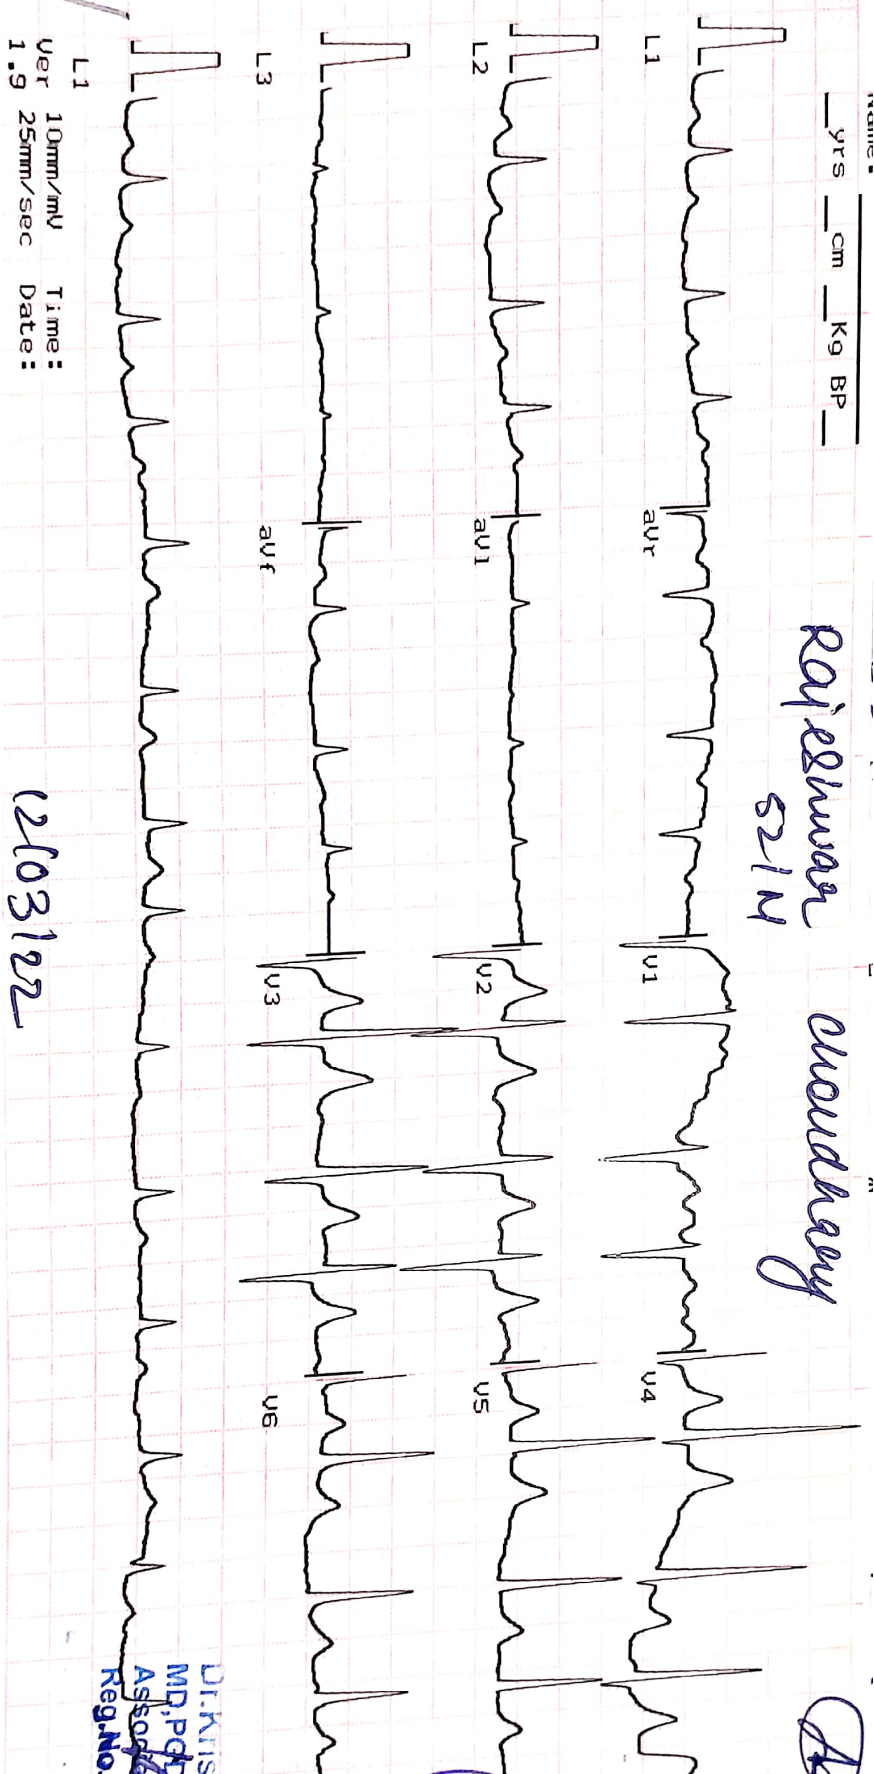 __yrs __cm __Kg BP__
Rajeshwar Choudhary
52/M
L1
aVr
V1
V4
L2
aVl
V2
V5
L3
aVf
V3
V6
L1
Ver 10mm/mV Time:
1.9 25mm/sec Date:
12/03/22
MD,
Reg.No.